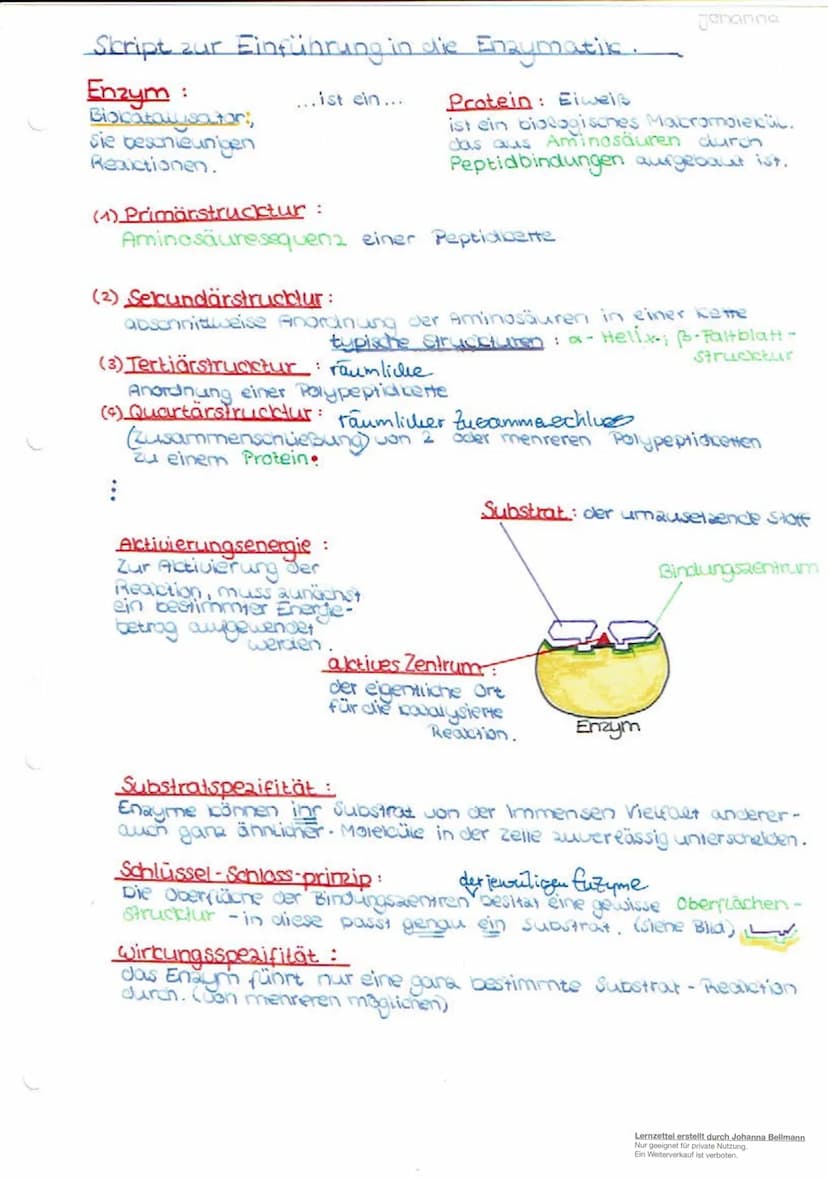 Johanna
Skript zur Einführung in die Enzymatik.
Enzym :
...ist ein...
Protein : Eiweiß
Biokatalysator;
sie beschleunigen
Reaktionen.
ist ein biologisches Makromolekül.
das aus Aminosäuren durch
Peptidbindungen aufgebaut ist.
(1) Primärstrucktur :
Aminosäuresequenz einer Peptidkette
(2) Sekundärstrucktur :
abschnittweise Anordnung der Aminosäuren in einer Kette
typische Struckturen : α-Helix ; β-Faltblatt-
strucktur
(3) Tertiärstrucktur : räumliche
Anordnung einer Polypeptidkette
(4) Quartärstrucktur : räumlicher Zusammenschluss
(Zusammenschließung) von 2 oder mehreren Polypeptidketten
zu einem Protein.
⋮
Substrat : der umzusetzende Stoff
Aktivierungsenergie :
Zur Aktivierung der
Reaktion, muss zunächst
ein bestimmter Energie-
betrag aufgewendet
werden.
Bindungszentrum
aktives Zentrum :
der eigentliche Ort
für die katalysierte
Reaktion.
Enzym
Substratspezifität :
Enzyme können ihr Substrat von der immensen Vielfalt anderer -
auch ganz ähnlicher - Moleküle in der Zelle zuverlässig unterscheiden.
Schlüssel-Schloss-prinzip :
der jeweiligen Enzyme
Die Oberfläche der Bindungszentren besitzt eine gewisse Oberflächen-
strucktur - in diese passt genau ein Substrat. (siehe Bild)
Wirkungsspezifität :
das Enzym führt nur eine ganz bestimmte Substrat-Reaktion
durch. (von mehreren möglichen)
Lernzettel erstellt durch Johanna Bellmann
Nur geeignet für private Nutzung.
Ein Weiterverkauf ist verboten.